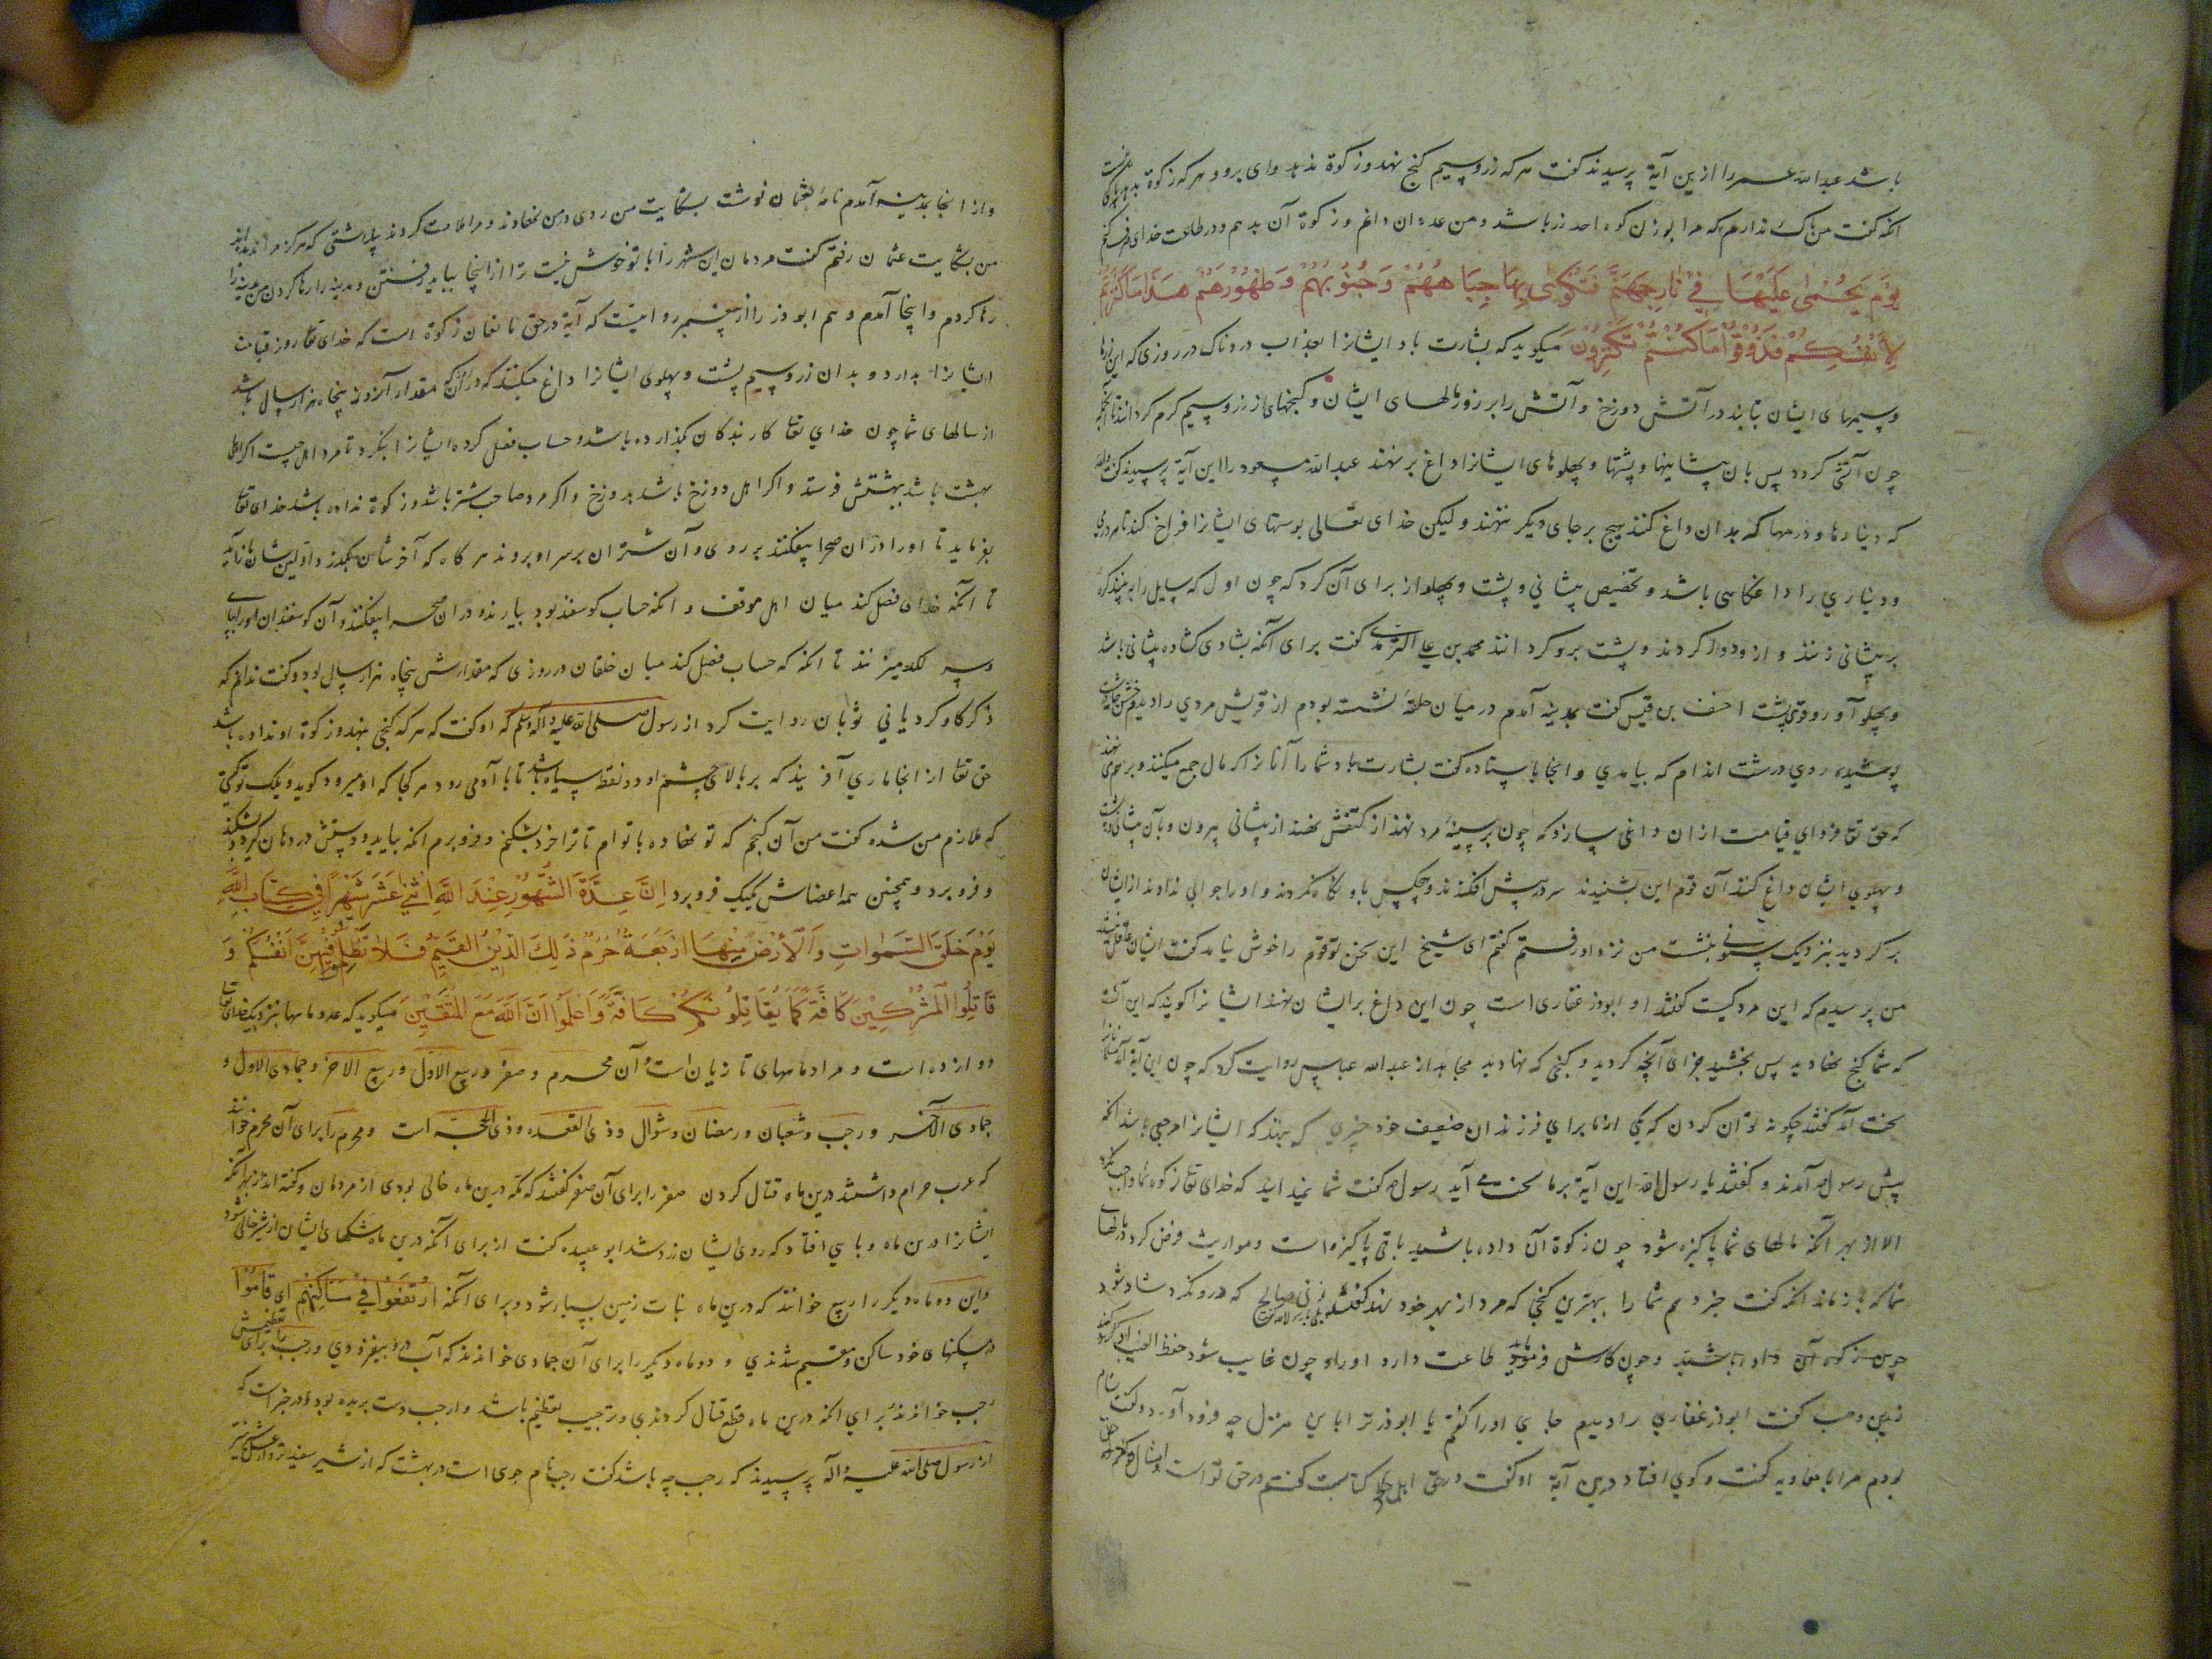 باشد عبدالله عمر را ازین آیة پرسیدند گفت هر که زر و سیم گنج نهد و زکوة ندهد وای برو و هر که زکوة بدهد
انکه گفت من باک ندارم که مرا بوزن کوه احد زر باشد و من عدد ان دانم و زکوة آن بدهم و در طاعت خدای صرف کنم
یَوْمَ یُحْمٰی عَلَیْهَا فِیْ نَارِ جَهَنَّمَ فَتُکْوٰی بِهَا جِبَاهُهُمْ وَجُنُوْبُهُمْ وَظُهُوْرُهُمْ هٰذَا مَا کَنَزْتُمْ
لِاَنْفُسِکُمْ فَذُوْقُوْا مَا کُنْتُمْ تَکْنِزُوْنَ میکوید که بشارت باد ایشانرا بعذاب دردناک در روزی که این زرها
وسیمهای ایشان بتابند در آتش دوزخ و آتش را بر زور مالهای ایشان و کنجهای از زر و سیم کرم کردانند تا همه
چون آتش کردد پس بان پیشانیها و پشتها و پهلوهای ایشانرا داغ بر نهند عبدالله مسعود را این آیة پرسیدند گفت
که دینارها و درمها که بدان داغ کنند هیچ بر جای دیکر ننهند ولیکن خدای تعالی پوستهای ایشانرا فراخ کند تا هر درمی
و دیناری را داغکاهی باشد و تخصیص پیشانی و پشت و پهلو از برای آن کرد که چون اول که سایل را به بینند کره
بر پیشانی زنند و ازو دور کردند و پشت برو کردانند محمد بن علی الترمذی گفت برای آنکه بشادی کشاده پیشانی باشد
و پهلو آور و قوی پشت احنف بن قیس گفت بمدینه آمدم در میان حلقهٔ نشسته بودم از قریش مردی را دیدم
پوشیده روی درشت اندام که بیامدی و انجا بایستاده گفت بشارت باد شما را آنانرا که مال جمع میکنند و بر هم می نهند
که حق تعا فردای قیامت ازان داغی سازد که چون بر سینهٔ مرد نهند از کتفش
و پهلوی ایشان داغ کنند آن قوم این بشنیدند سر در پیش افکندند و هیچکس باو نکاه نکردند و اورا جوابی ندادند از ایشان
بر کردید بنزدیک ستونی بنشست من نزد او رفتم گفتم ای شیخ این سخن تو قوم را خوش نیامد گفت ایشان
من پرسیدم که این مرد کیست گفتند او ابوذر غفاری است چون این داغ بر ایشان نهند ایشانرا کویند که این آنست
که شما کنج نهادید پس بچشید جزای آنچه کردید و کنجی که نهادید مجاهد از عبدالله عباس روایت کرد که چون این آیة آمد
سخت آمد گفتند چکونه توان کردن که یکی از ما برای فرزندان ضعیف خود چیزی که بنهد که ایشانرا مرجعی باشد انکه
پیش رسول آمدند و گفتند یا رسول الله این آیة بر ما سخت می آید رسول گفت شما نمیدانید که خدای تعا زکوة شما واجب نکرد
الا از بهر آنکه مالهای شما پاکیزه شود چون زکوة آن داده باشید باقی پاکیزه است و مواریث فرض کرد در مالهای
شما که باز ماند انکه گفت خبر دهم شما را بهترین کنجی که مرد از بهر خود نهد گفتند بلی یا رسول الله گفت زنی صالح که درو نکرد شاد شود
و چون کارش فرماید طاعت دارد اورا و چون غایب شود حفظ الغیب او
زید بن وهب گفت ابوذر غفاری را دیدم اورا گفتم یا ابوذر ترا باین منزل چه فرود آورد و گفت
بودم مرا با معاویه گفت و گوی افتاد درین آیة او گفت در حق اهل کتابست گفتم در حق تو است
و از انجا بمدینه آمدم نامهٔ بعثمان نوشت بشکایت من روی در من نهادند و مرا ملامت کردند پنداشتی که هرکز مرا ندیده اند
من بشکایت عثمان رفتم گفت مردمان این شهر را با تو خوش نیست ترا از اینجا بباید رفتن و مدینه را رها کردن من مدینه را
رها کردم و اینجا آمدم و هم ابوذر را از پیغمبر روایتست که آیة در حق مانعان زکوة است که خدای تعا روز قیامت
ایشانرا بدارد و بدان زر و سیم پشت و پهلوی ایشانرا داغ میکنند که مقدار آنروز پنجاه هزار سال باشد
از سالهای شما چون خدای تعا کار بندکان بگذارده باشد و حساب فصل کرده ایشانرا بنکرد تا مرد اهل چیست اکر اهل
بهشت باشد ببهشتش فرستد و اکر اهل دوزخ باشد بدوزخ و اکر مرد صاحب شتر باشد و زکوة نداده باشد خدای تعا
بفرماید تا اورا در ان صحرا بیفکنند بر روی و آن شتران بر سر او بروند هر کاه که آخرشان بکذرد اولین شان باز آید
تا آنکه خدای فصل کند میان اهل موقف و انکه حساب کوسفند بود بیارند و در ان صحرا بیفکنند و آن کوسفندان اورا بپای
و سر لکد میزنند تا انکه که حساب فصل کند میان خلقان در روزی که مقدارش پنجاه هزار سال بود و گفت ندانم که
ذکر کاو کرد یا نی ثوبان روایت کرد از رسول صلی الله علیه و آله وسلم که او گفت که هر که کنجی بنهد و زکوة او نداده باشد
حق تعا از انجا ماری آفریند که بر بالای چشم او دو نقطه سیاه باشد تا با آدمی رود هر کجا که او میرود کوید ویلک تو کیستی
که ملازم من شده گفت من آن کنجم که تو نهاده با توام تا ترا خرد بشکنم و فرو برم انکه بیاید و دستش در دهان کیرد و بشکند
و فرو برد و همچنین همه اعضاش یکیک فرو برد اِنَّ عِدَّةَ الشُّهُوْرِ عِنْدَ اللّٰهِ اثْنٰی عَشَرَ شَهْرًا فِیْ کِتَابِ اللّٰهِ
یَوْمَ خَلَقَ السَّمٰوَاتِ وَالْاَرْضَ مِنْهَا اَرْبَعَةٌ حُرُمٌ ذٰلِكَ الدِّیْنُ الْقَیِّمُ فَلَا تَظْلِمُوْا فِیْهِنَّ اَنْفُسَکُمْ وَ
قَاتِلُوا الْمُشْرِکِیْنَ کَافَّةً کَمَا یُقَاتِلُوْنَکُمْ کَافَّةً وَاعْلَمُوْا اَنَّ اللّٰهَ مَعَ الْمُتَّقِیْنَ میکوید که عدد ماهها بنزدیک خدای تعا
دوازده است و مراد ماههای تازیان است و آن محرم و صفر و ربیع الاول و ربیع الاخر و جمادی الاول و
جمادی الآخر و رجب و شعبان و رمضان و شوال و ذی القعده و ذی الحجه است و محرم را برای آن محرم خواندند
که عرب حرام داشتند درین ماه قتال کردن صفر را برای آن صفر گفتند که مکه درین ماه خالی بودی از مردمان و گفته اند از بهر آنکه
ایشانرا درین ماه وبایی افتاد که روی ایشان زرد شد ابو عبیده گفت از برای آنکه درین ماه مشکهای ایشان از شیر خالی شود
و این دو ماه دیکر را ربیع خوانند که درین ماه نبات زمین بسیار شود و برای آنکه ارتفعوا فی مساکنهم ای قاموا
در مسکنهای خود ساکن و مقیم شدندی و دو ماه دیکر را برای آن جمادی خواندند که آب درو بیفسردی و رجب را برای تعظیمش
رجب خواندند برای انکه درین ماه قطع قتال کردندی و ترجیب تعظیم باشد و ارجب دست بریده بود و در خبر است که
از رسول صلی الله علیه و آله پرسیدند که رجب چه باشد گفت رجب نام جوی است در بهشت که از شیر سفیدتر و از عسل شیرین تر